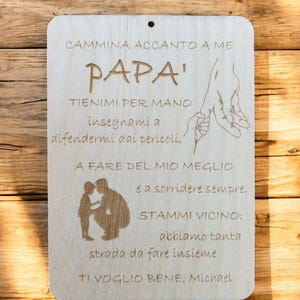 CAMMINA ACCANTO A ME
PAPA'
TIENIMI PER MANO
insegnami a
difendermi dai pericoli,
A FARE DEL MIO MEGLIO
e a sorridere sempre.
STAMMI VICINO:
abbiamo tanta
strada da fare insieme
TI VOGLIO BENE, Michael